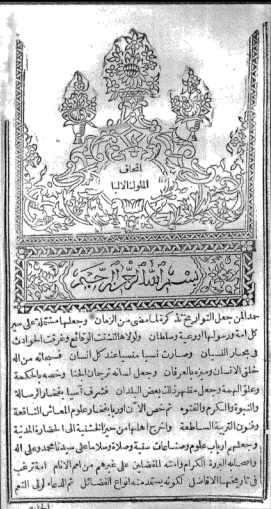 اتحاف
الملوك الالبا
بسم الله الرحمن الرحيم
حمدا لمن جعل التواريخ تذكرة لما مضى من الزمان وجعلها مشتملة على سير
كل امة ورسولها او رعية وسلطان ولولاها لتشتت الوقائع وغرقت الحوادث
في بحار النسيان وصارت نسيا منسيا عند كل انسان فسبحانه من اله
خلق الانسان وميزه بالعرفان وجعل لسانه ترجمان الجنان وخصه بالحكمة
وعلو الهمة وجعل مظهر ذلك بعض البلدان فشرف آسيا بفخار الرسالة
والنبوة والكرم والفتوة ثم خص الآن اوربا بفخار علوم المعاش النافعة
وفنون التربية الساطعة واخرج اهلها من حيز الخشنية الى الحضارة المدنية
وجعلهم ارباب علوم وصناعات سنية وصلاة وسلاما على سيدنا محمد وعلى اله
واصحابه البررة الكرام وامته المفضلين على غيرهم من امم الانام امة ترغب
في تاريخها الافاضل لكونه يستفد منه انواع الفضائل ثم الدعاء لولي النعم